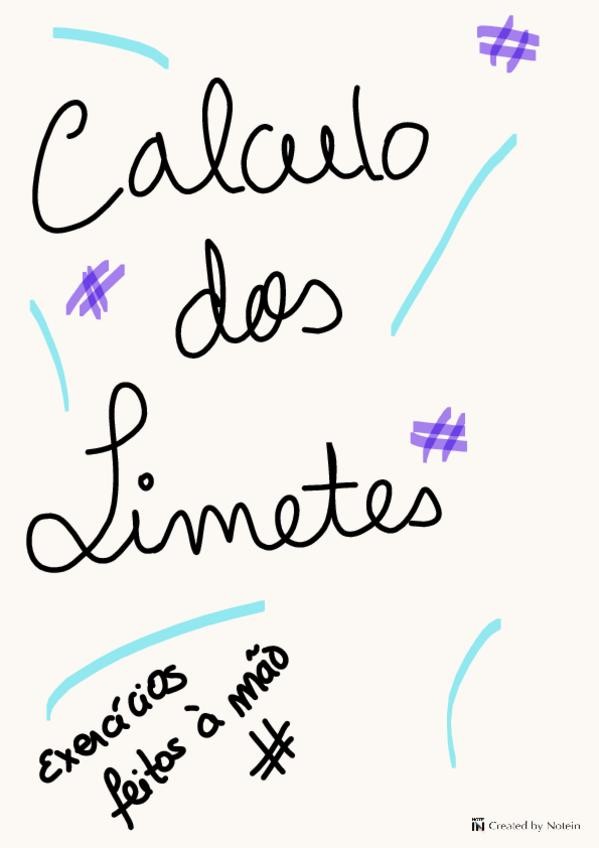 #
Calculo
#
dos
Limetes
#
Exercácios
feitos à mão
#
NOTE IN Created by Notein